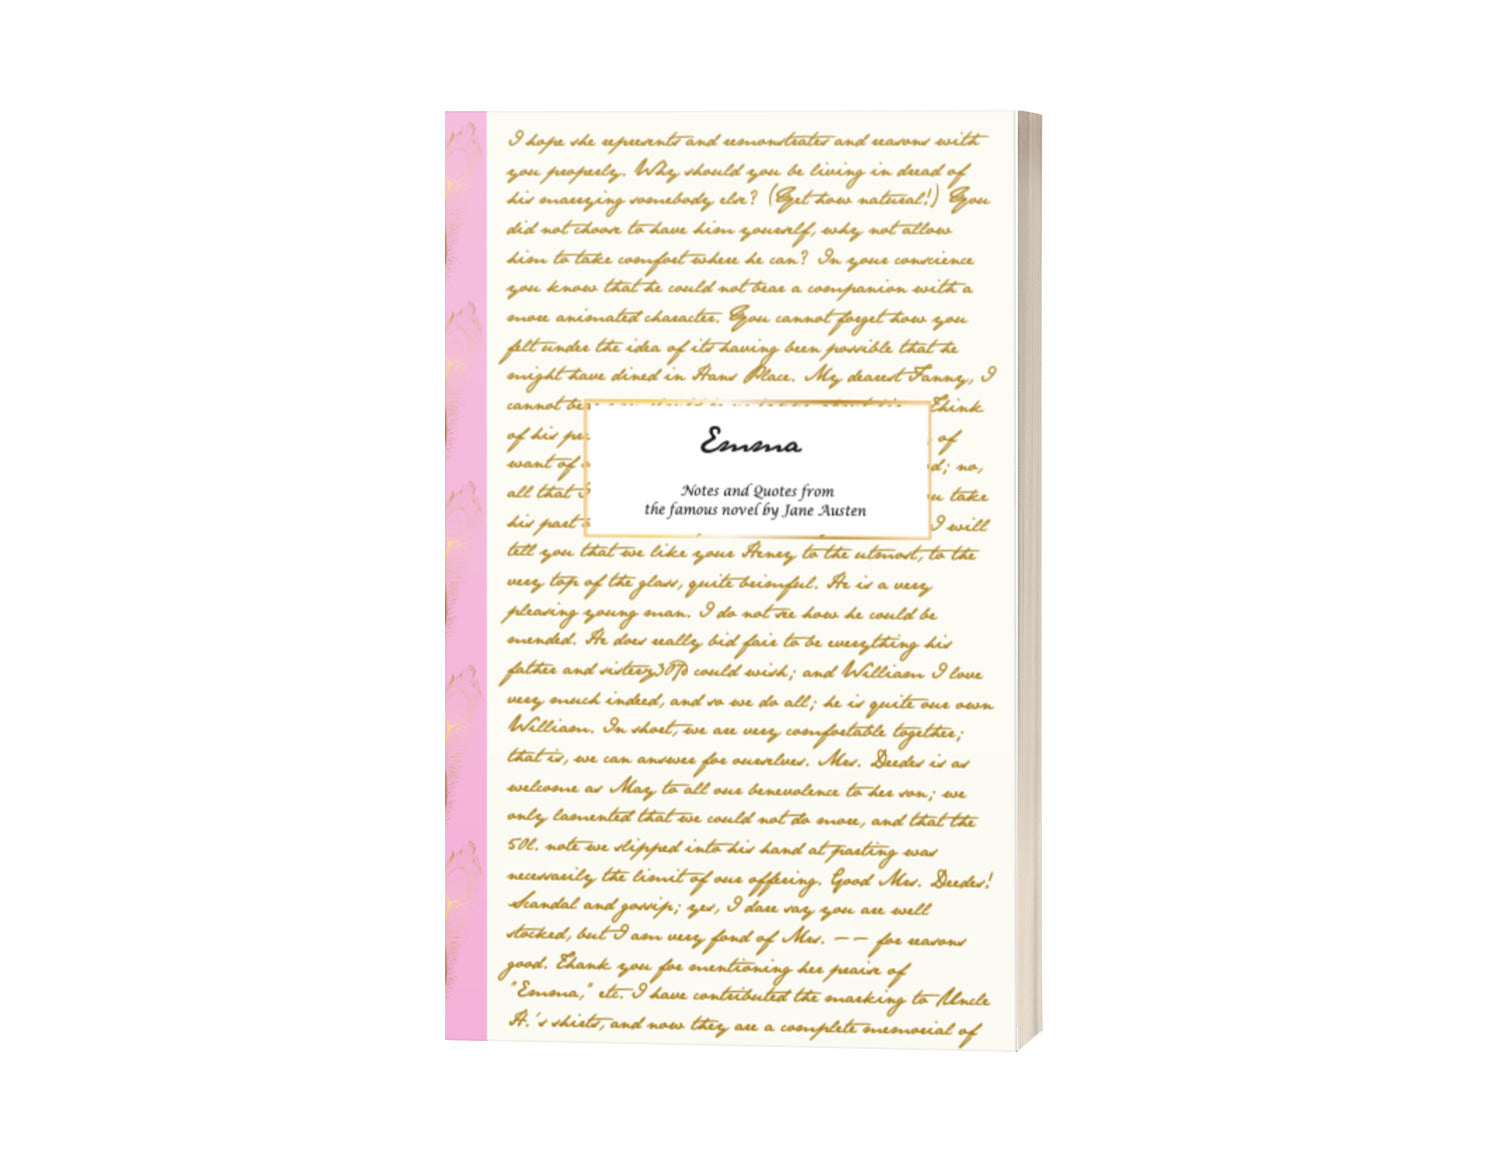 I hope she represents and remonstrates and reasons with
you properly. Why should you be living in dread of
his marrying somebody else? (Yet how natural!) You
did not choose to have him yourself, why not allow
him to take comfort where he can? In your conscience
you know that he could not bear a companion with a
more animated character. You cannot forget how you
felt under the idea of its having been possible that he
might have dined in Hans Place. My dearest Fanny, I
cannot Think
of his of
want of d; no,
all that take
his part I will
Emma
Notes and Quotes from
the famous novel by Jane Austen
tell you that we like your Henry to the utmost, to the
very top of the glass, quite brimful. He is a very
pleasing young man. I do not see how he could be
mended. He does really bid fair to be everything his
father and sistery30Þ could wish; and William I love
very much indeed, and so we do all; he is quite our own
William. In short, we are very comfortable together;
that is, we can answer for ourselves. Mrs. Deedes is as
welcome as May to all our benevolence to her son; we
only lamented that we could not do more, and that the
50l. note we slipped into his hand at parting was
necessarily the limit of our offering. Good Mrs. Deedes!
Scandal and gossip; yes, I dare say you are well
stocked, but I am very fond of Mrs. — — for reasons
good. Thank you for mentioning her praise of
"Emma," etc. I have contributed the marking to Uncle
H.'s shirts, and now they are a complete memorial of